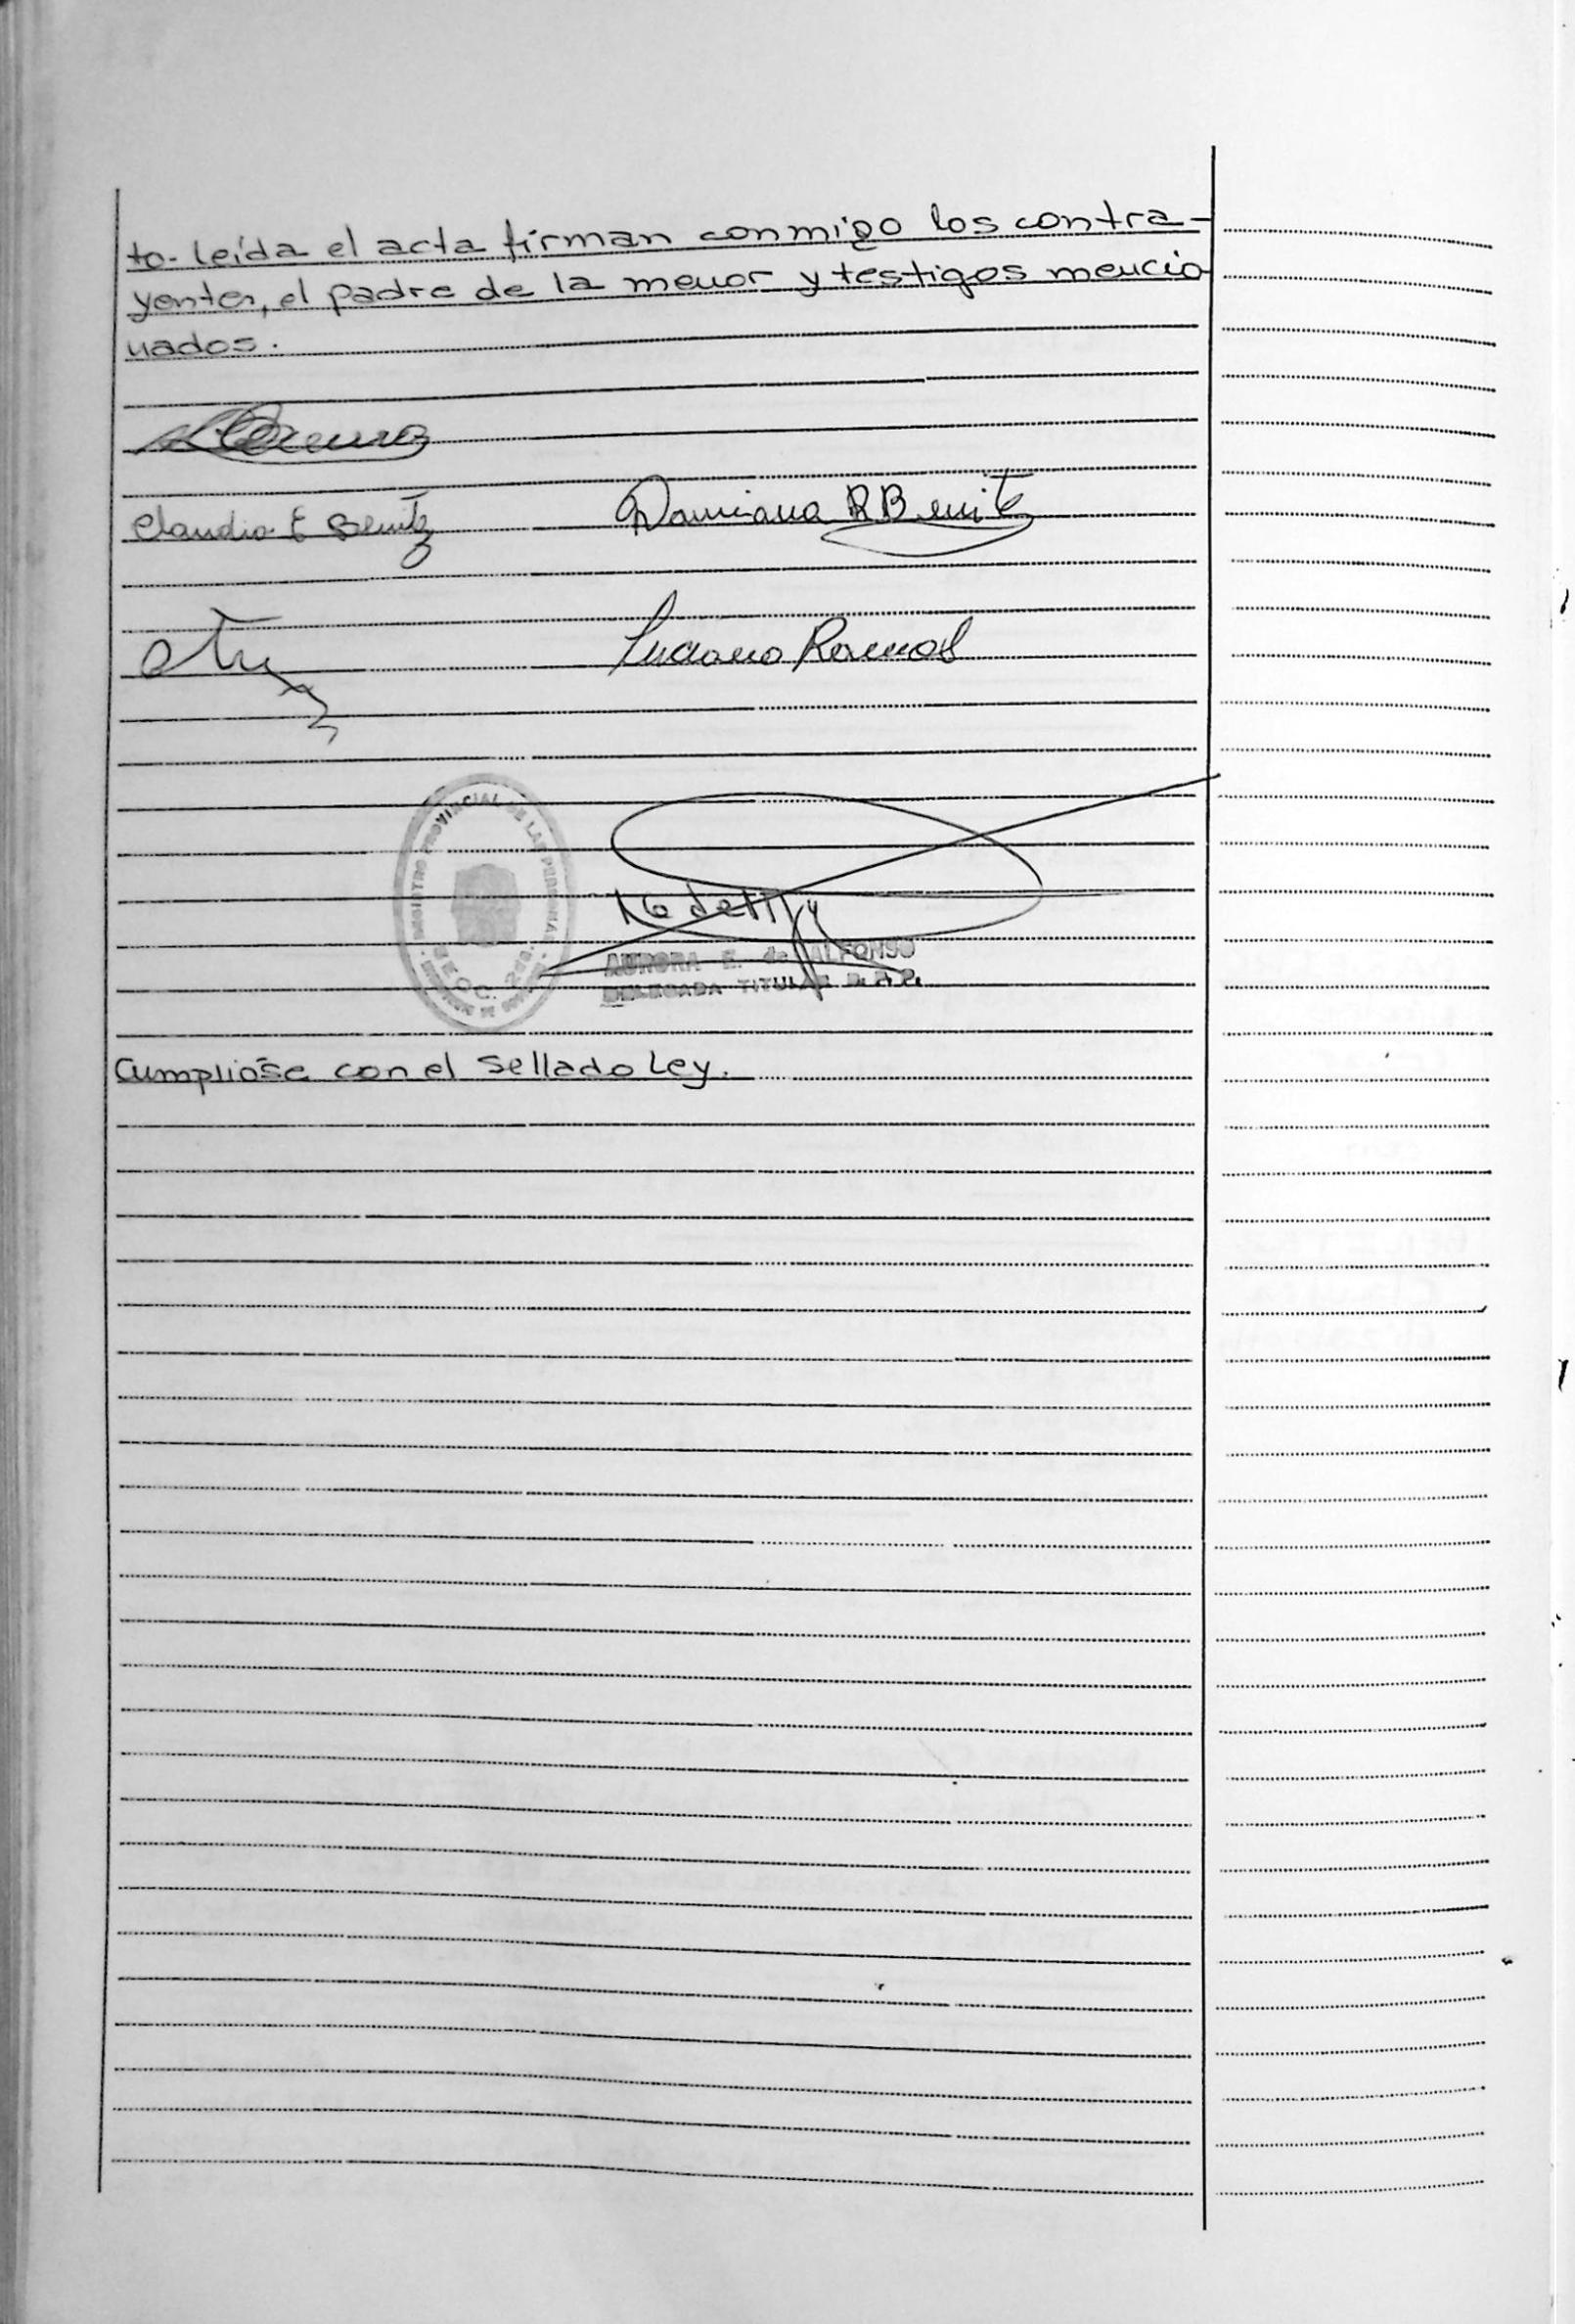 to- leída el acta firman conmigo los contra-
yentes, el padre de la menor y testigos mencio
nados.
Claudio E Benitz
Damiana R Benitz
Luciano Ramos
REGISTRO PROVINCIAL DE LAS PERSONAS
SECC. 2da.
AURORA E. de ALFONSO
DELEGADA TITULAR R.P.P.
Cumplióse con el sellado Ley.